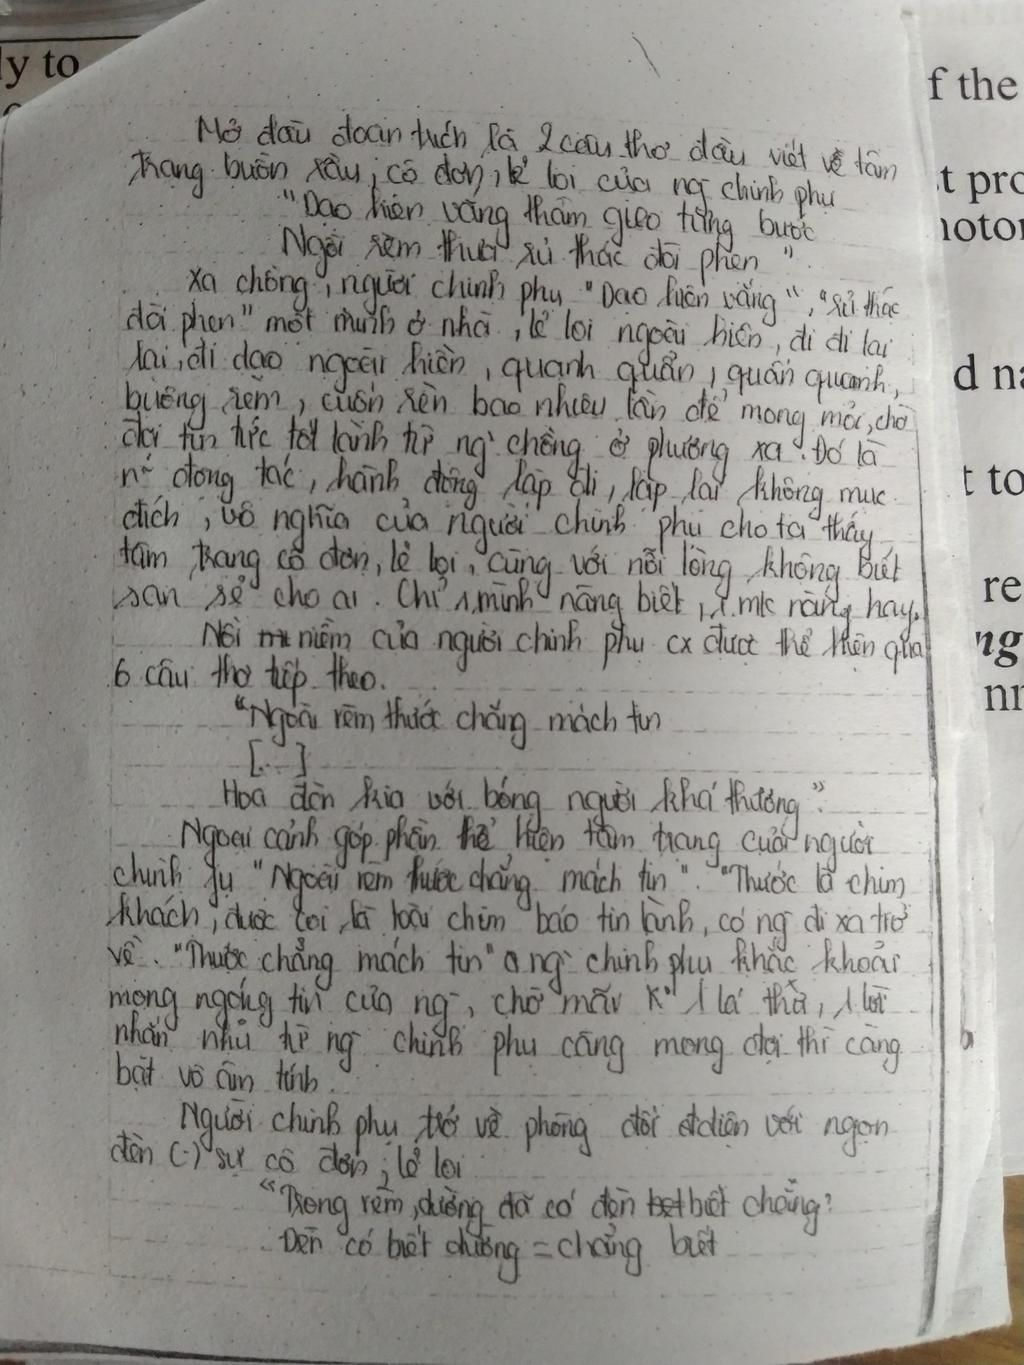 Mở đầu đoạn trích là 2 câu thơ đầu viết về tâm
trạng buồn xầu, cô đơn, lẻ loi của ng chinh phụ
"Dạo hiên vắng thầm gieo từng bước
Ngồi rèm thưa rủ thác đòi phen".
Xa chồng, người chinh phụ "Dạo hiên vắng", "rủ thác
đòi phen" một mình ở nhà, lẻ loi ngoài hiên, đi đi lại
lại, đi dạo ngoài hiên, quanh quẩn, quẩn quanh,
buông rèm, cuốn rèn bao nhiêu lần để mong mỏi, chờ
đợi tin tức tốt lành từ ng` chồng ở phương xa. Đó là
n~ động tác, hành động lặp đi, lặp lại không mục
đích, vô nghĩa của người chinh phụ cho ta thấy
tâm trạng cô đơn, lẻ loi, cùng với nỗi lòng không biết
san sẻ cho ai. Chỉ 1 mình nàng biết, 1 mk nàng hay.
Nỗi niềm của người chinh phụ cx được thể hiện qua
6 câu thơ tiếp theo.
"Ngoài rèm thước chẳng mách tin
[...]
Hoa đèn kia với bóng người khá thương".
Ngoại cảnh góp phần thể hiện tâm trạng của người
chinh fụ "Ngoài rèm thước chẳng mách tin". "Thước là chim
khách, được coi là loài chim báo tin lành, có ng đi xa trở
về. "Thước chẳng mách tin" ng` chinh phụ khắc khoải
mong ngóng tin của ng`, chờ mãi K° 1 lá thư, 1 lời
nhắn nhủ từ ng` chinh phụ càng mong đợi thì càng
bặt vô âm tính.
Người chinh phụ trở về phòng đối diện với ngọn
đèn (-) sự cô đơn, lẻ loi
"Trong rèm, dường đã có đèn biết chăng?
Đèn có biết dường = chẳng biết